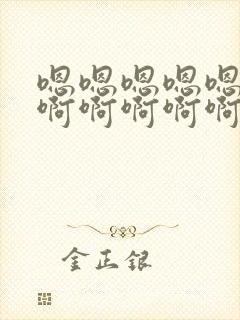 嗯嗯嗯嗯嗯
啊啊啊啊啊
金正银